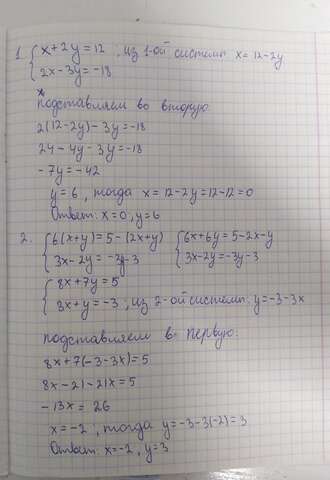 1. { x+2y=12 ; из 1-ой системы x=12-2y
2x-3y=-18
подставляем во вторую
2(12-2y)-3y=-18
24-4y-3y=-18
-7y=-42
y=6, тогда x=12-2y=12-12=0
Ответ: x=0, y=6
2. { 6(x+y)=5-(2x+y) { 6x+6y=5-2x-y
3x-2y=-3y-3 3x-2y=-3y-3
{ 8x+7y=5
3x+y=-3, из 2-ой системы: y=-3-3x
подставляем в первую:
8x+7(-3-3x)=5
8x-21-21x=5
-13x=26
x=-2, тогда y=-3-3(-2)=3
Ответ: x=-2, y=3